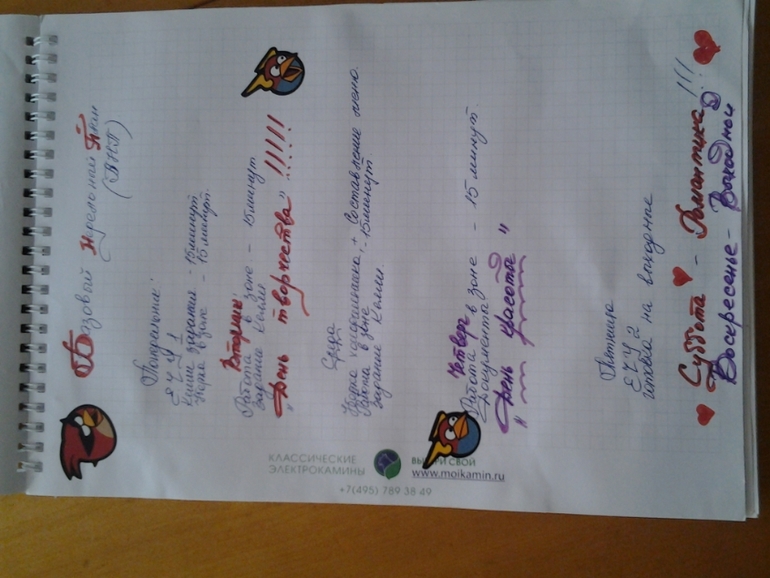 Базовый Недельный План
(БНП)
Понедельник:
ЕЧУ 1
Келли задания - 15 минут
Уборка в зоне - 15 минут.
Вторник:
Работа в зоне - 15 минут
Задание Келли
"День творчества" !!!!!!
Среда
Уборка холодильника, + Составление меню.
Работа в зоне - 15 минут
Задание Келли.
Четверг
Работа в зоне - 15 минут.
Документы
"День красоты"
Пятница
ЕЧУ 2
готовка на выходные
Суббота - Романтика!!!
Воскресенье - Выходной
КЛАССИЧЕСКИЕ
ЭЛЕКТРОКАМИНЫ
СВОЙ
www.moikamin.ru
+7(495) 789 38 49